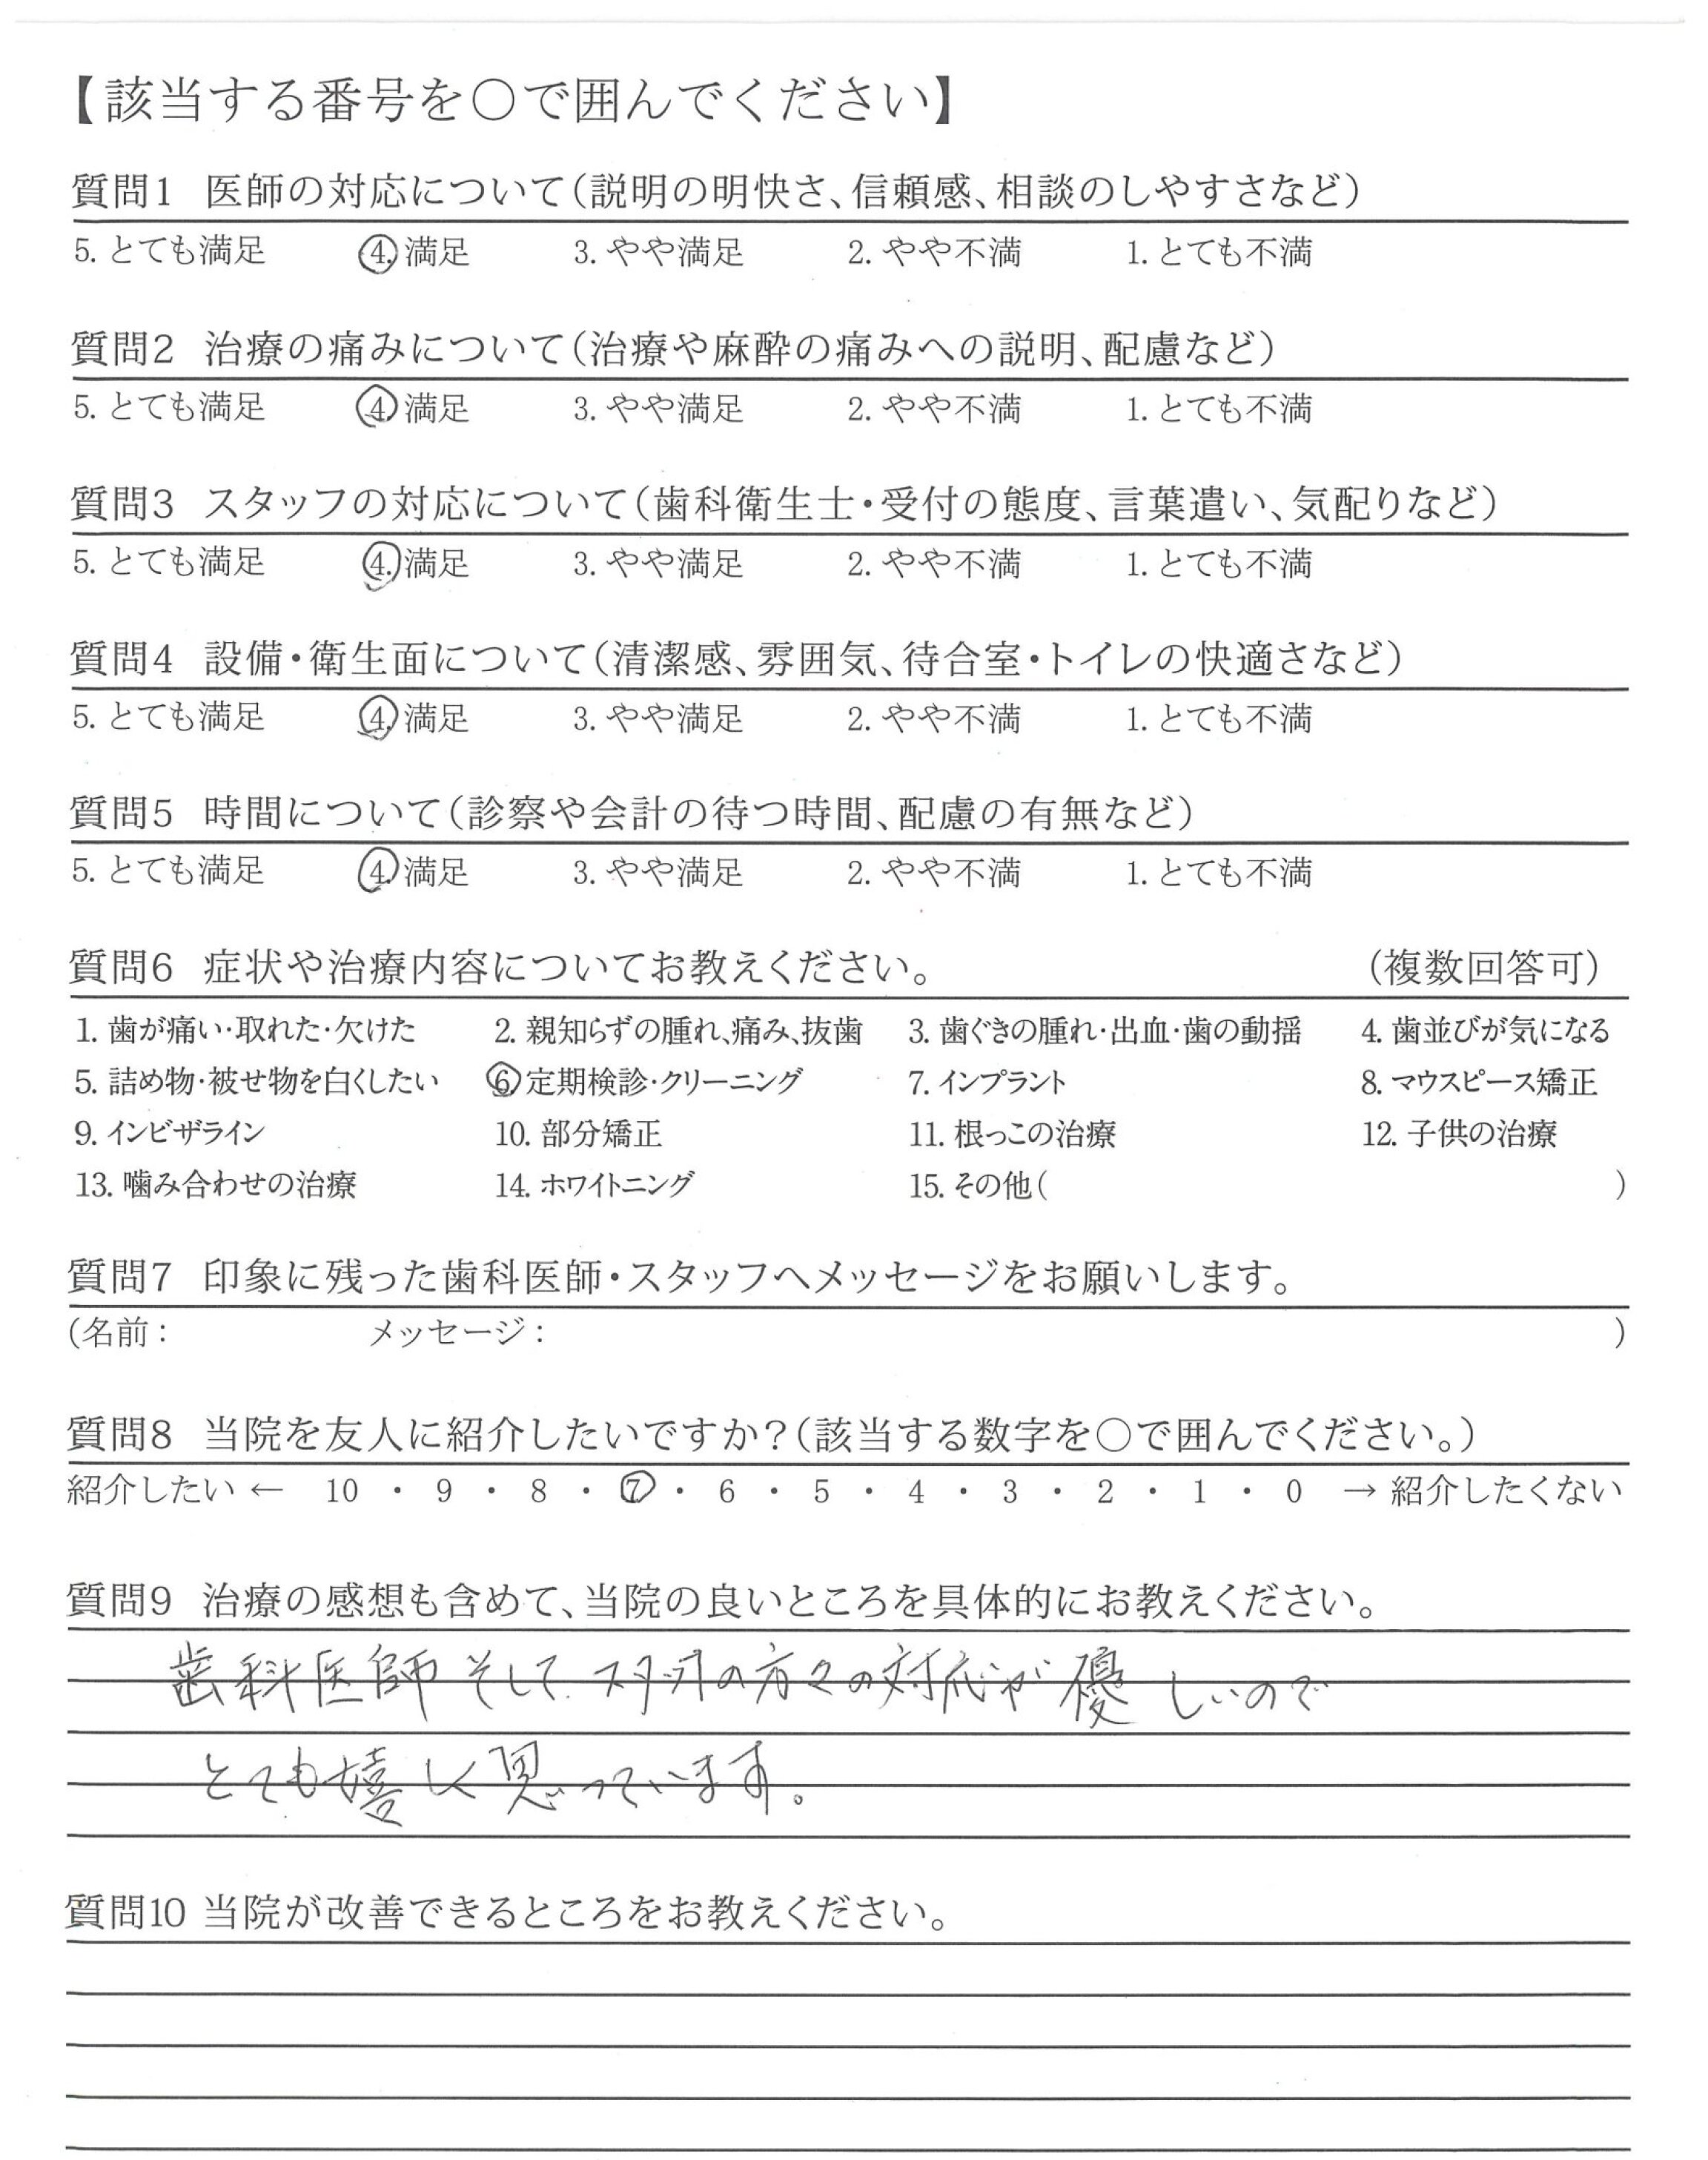 【該当する番号を○で囲んでください】
質問1 医師の対応について(説明の明快さ、信頼感、相談のしやすさなど)
5. とても満足 4. 満足 3. やや満足 2. やや不満 1. とても不満
質問2 治療の痛みについて(治療や麻酔の痛みへの説明、配慮など)
5. とても満足 4. 満足 3. やや満足 2. やや不満 1. とても不満
質問3 スタッフの対応について(歯科衛生士・受付の態度、言葉遣い、気配りなど)
5. とても満足 4. 満足 3. やや満足 2. やや不満 1. とても不満
質問4 設備・衛生面について(清潔感、雰囲気、待合室・トイレの快適さなど)
5. とても満足 4. 満足 3. やや満足 2. やや不満 1. とても不満
質問5 時間について(診察や会計の待つ時間、配慮の有無など)
5. とても満足 4. 満足 3. やや満足 2. やや不満 1. とても不満
質問6 症状や治療内容についてお教えください。 (複数回答可)
1. 歯が痛い・取れた・欠けた 2. 親知らずの腫れ、痛み、抜歯 3. 歯ぐきの腫れ・出血・歯の動揺 4. 歯並びが気になる
5. 詰め物・被せ物を白くしたい 6. 定期検診・クリーニング 7. インプラント 8. マウスピース矯正
9. インビザライン 10. 部分矯正 11. 根っこの治療 12. 子供の治療
13. 噛み合わせの治療 14. ホワイトニング 15. その他( )
質問7 印象に残った歯科医師・スタッフへメッセージをお願いします。
(名前: メッセージ: )
質問8 当院を友人に紹介したいですか?(該当する数字を○で囲んでください。)
紹介したい ← 10 ・ 9 ・ 8 ・ 7 ・ 6 ・ 5 ・ 4 ・ 3 ・ 2 ・ 1 ・ 0 → 紹介したくない
質問9 治療の感想も含めて、当院の良いところを具体的にお教えください。
歯科医師そして スタッフの方々の対応が優しいので
とても嬉しく思っています。
質問10 当院が改善できるところをお教えください。